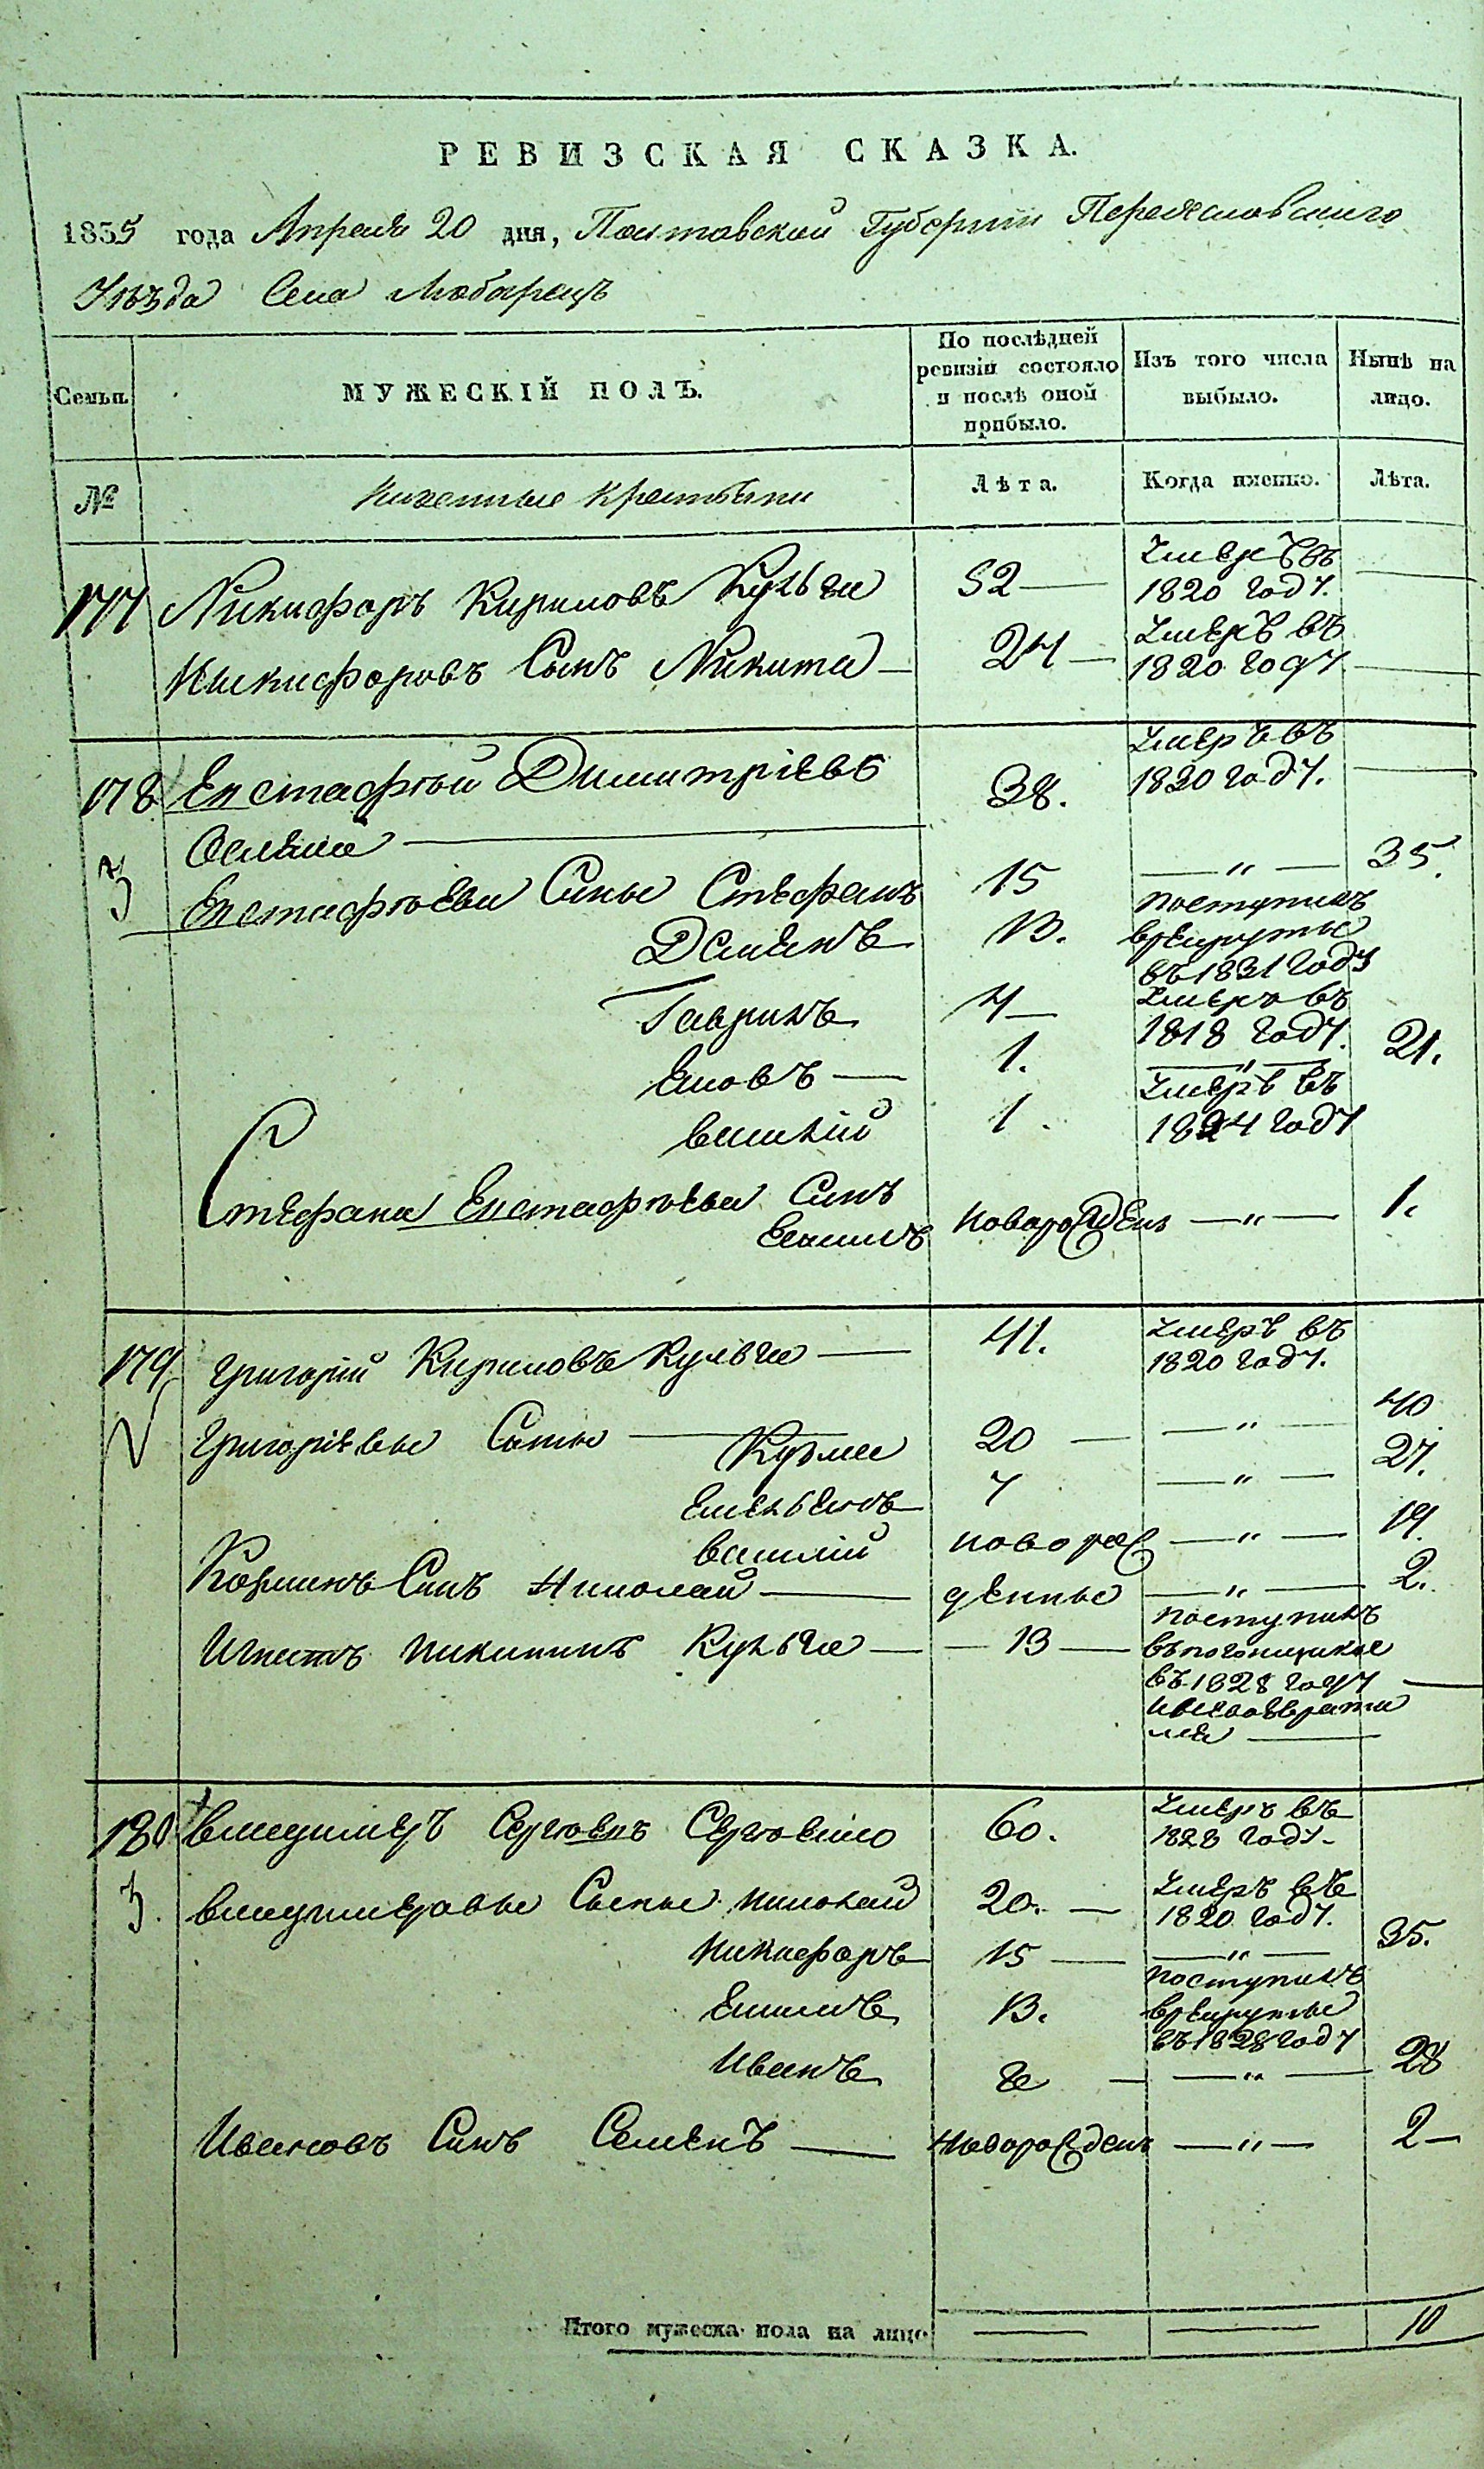 РЕВИЗСКАЯ СКАЗКА.
1835 года Апреля 20 дня, Полтавской Губернии Переяславского
Уѣзда Села Любарецъ
Семьи.
МУЖЕСКІЙ ПОЛЪ.
По послѣдней ревизіи состояло и послѣ оной прибыло.
Изъ того числа выбыло.
Нынѣ на лицо.
№
Крестьяне
Лѣта.
Когда именно.
Лѣта.
177 Никифоръ Кириловъ Кульга 52 — Умеръ въ 1820 году. —
Никифоровъ Сынъ Никита — 24 — Умеръ въ 1820 году —
178 Евстафѣй Димитріевъ 38. Умеръ въ 1820 году. —
3 Евстафѣевы Сыны Стефанъ 15 — " — 35.
Деменъ 13. поступилъ в рекруты въ 1831 году
Гаврилъ 4 — Умеръ въ 1818 году.
Яковъ — 1. — " — 21.
Василій 1. Умеръ въ 1824 году
Стефана Евстафѣева Сынъ
новорожденъ — " — 1.
179 Григорій Кириловъ Кульга — 41. Умеръ въ 1820 году.
Григоріевы Сыны — Кузма 20 — — " — 40
Емельянъ 7 — " — 27.
Василій новорож — " — 19.
Сынъ Николай — денные — " — 2.
Игнатъ Никитинъ Кульга — — 13 — поступилъ въ погонщики въ 1828 году —
180 Владимеръ Сергѣевъ 60. Умеръ въ 1828 году.
3. Владимеровы Сыны Николай 20. — Умеръ въ 1820 году.
Никифоръ 15 — — " — 35.
13. поступилъ в рекруты въ 1828 году
Иванъ 8 — — " — 28
Ивановъ Сынъ Семенъ — Новорожденъ — " — 2 —
Итого мужеска пола на лицо — — 10